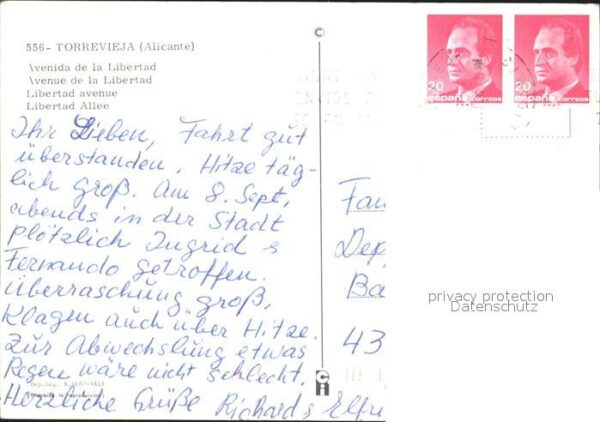 556 - TORREVIEJA (Alicante)
Avenida de la Libertad
Avenue de la Libertad
Libertad avenue
Libertad Allee
Ihr Lieben, Fahrt gut
überstanden. Hitze täg-
lich groß. Am 8. Sept.
abends in der Stadt
plötzlich Ingrid &
Fernando getroffen.
Überraschung groß.
Klagen auch über Hitze.
Zur Abwechslung etwas
Regen wäre nicht schlecht.
Herzliche Grüße Richard & Elfre
20
españa correos
20
españa correos
Fam
Dep
Ba
43
privacy protection
Datenschutz